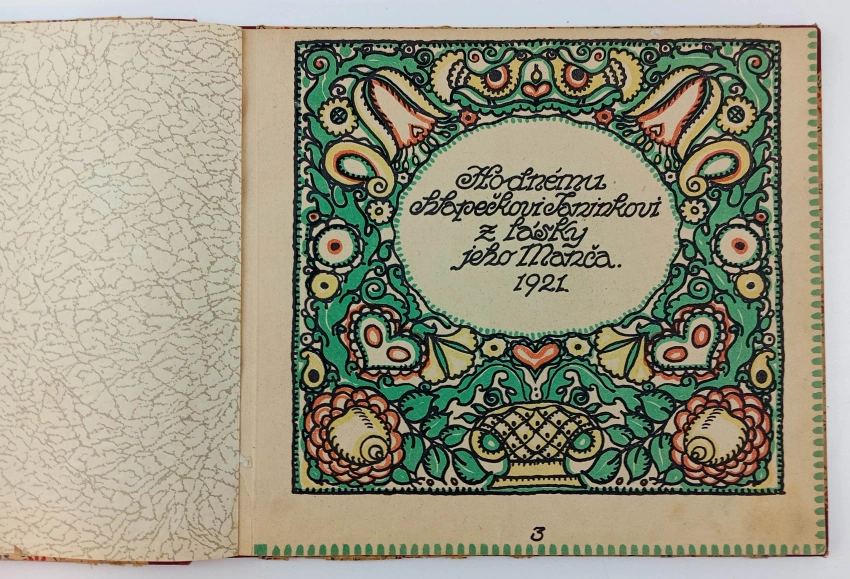 Hodnému
chlapečkovi Janinkovi
z lásky
jeho Manča.
1921
3